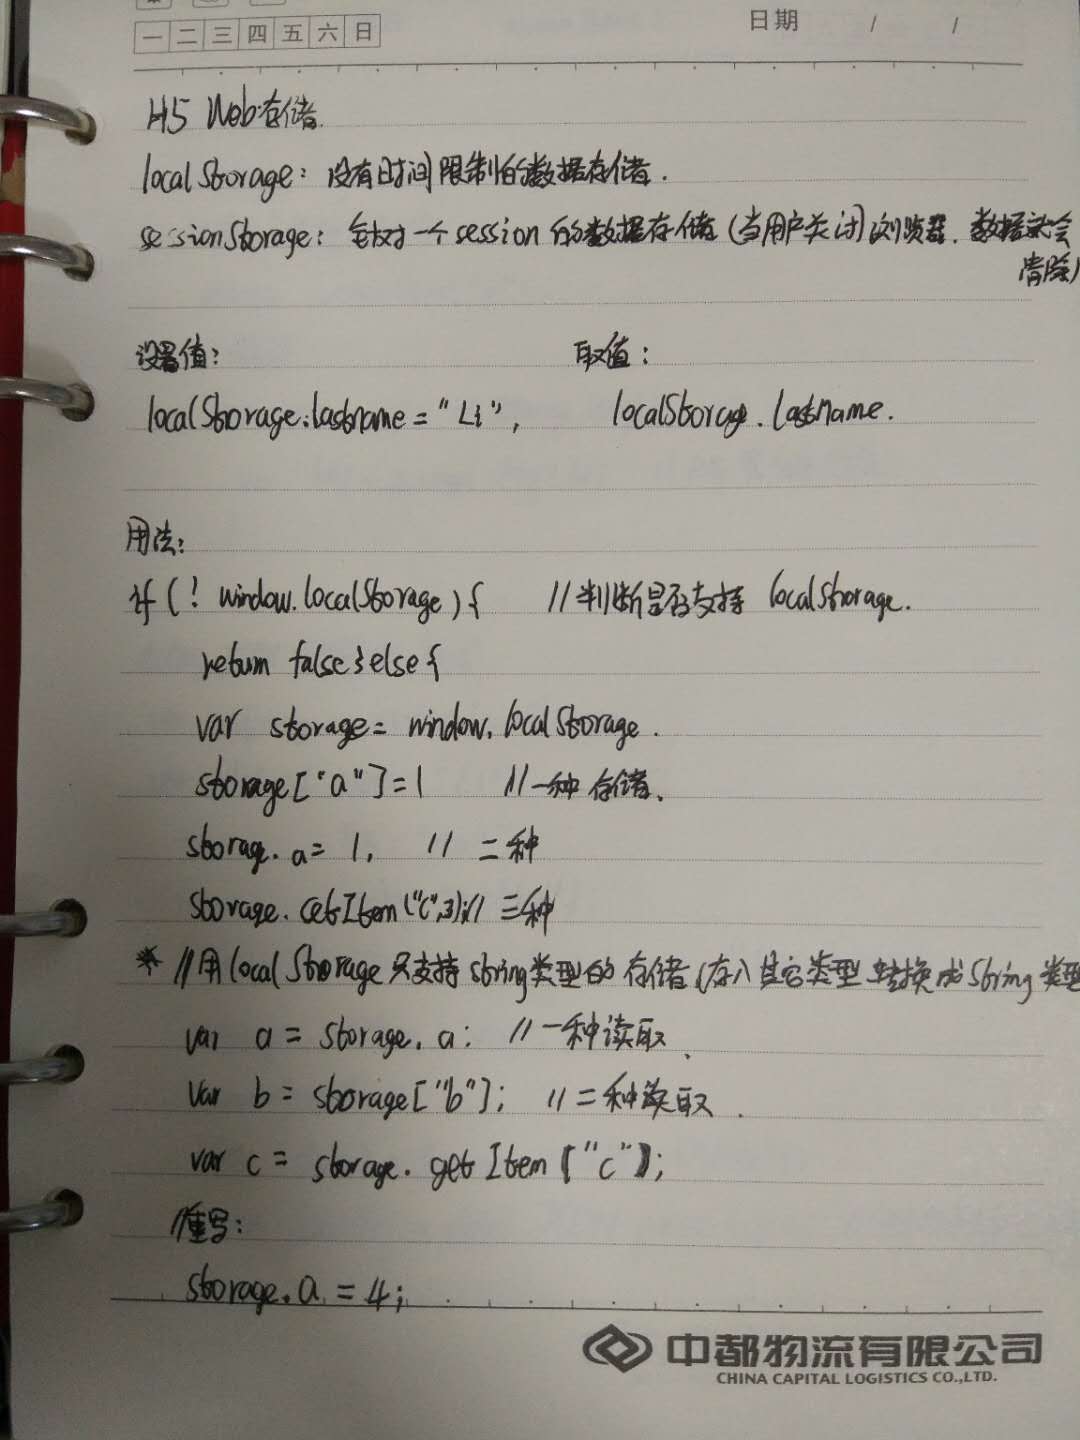 一 二 三 四 五 六 日
日期 / /
H5 Web存储.
localStorage: 没有时间限制的数据存储.
sessionStorage: 针对一个session的数据存储(当用户关闭浏览器. 数据就会
清除)
设置值: 取值:
localStorage.lastname = "Li", localStorag. lastName.
用法:
if (! window.localStorage) { //判断是否支持 localStorage.
return false } else {
var storage = window. localStorage.
storage["a"]=1 //一种存储.
storage. a = 1, // 二种
storage. setItem("c",3); // 三种
* //用localStorage只支持string类型的存储(存入其它类型 转换成String类型
var a = storage. a; //一种读取.
var b = storage["b"]; //二种读取.
var c = storage. getItem("c");
//重写:
storage.a = 4;
中都物流有限公司
CHINA CAPITAL LOGISTICS CO.,LTD.